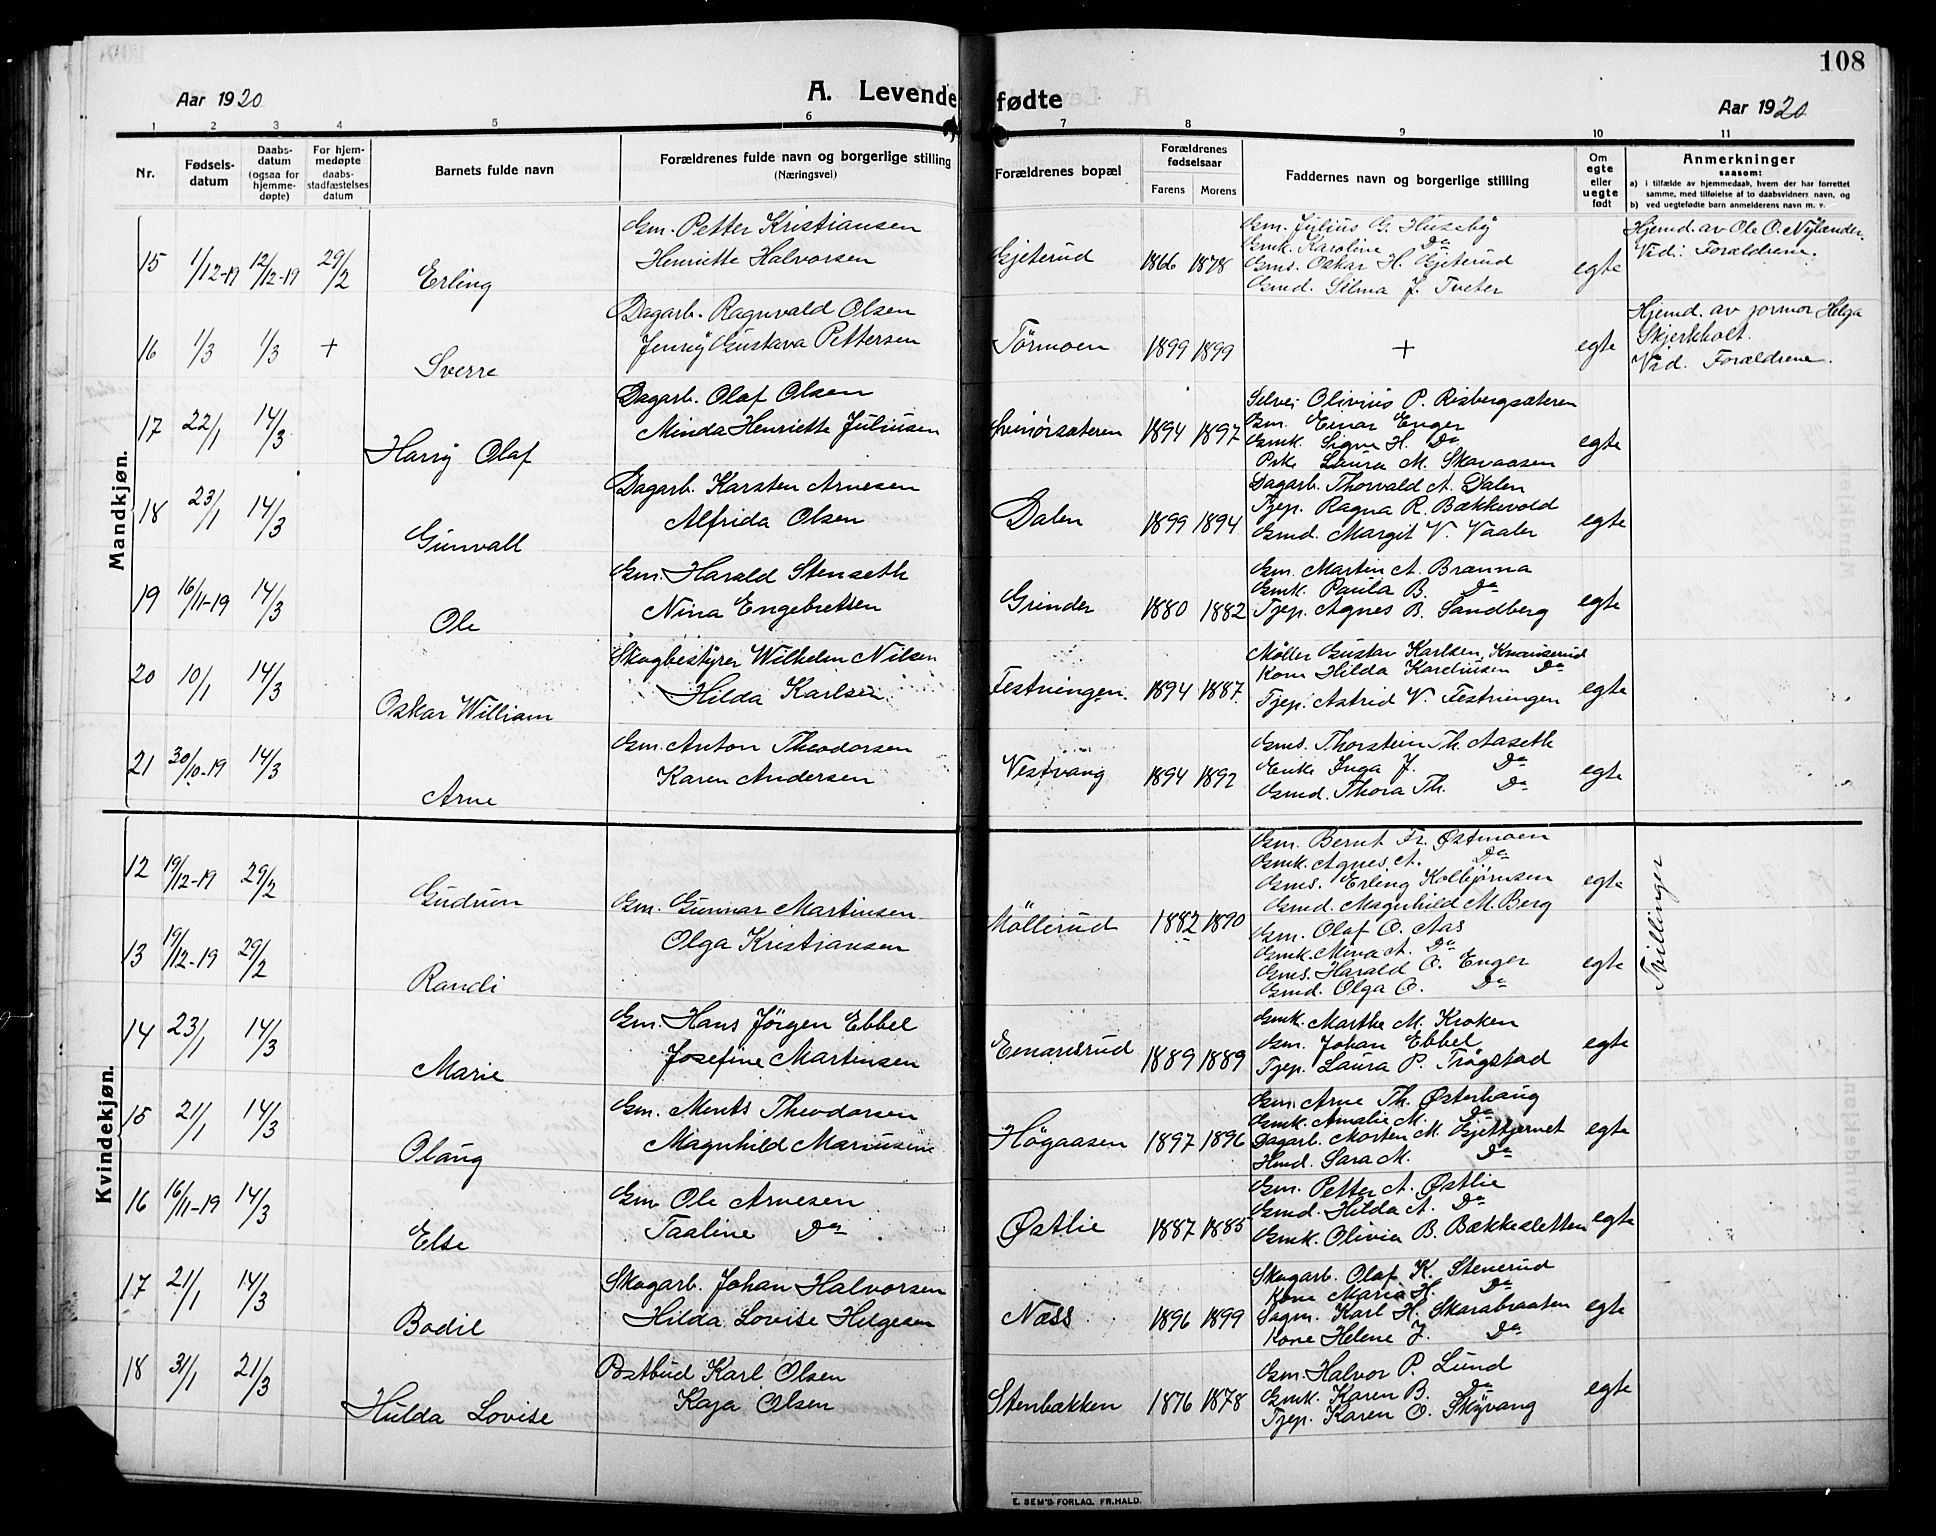 108
Aar 1920
A. Levendefødte
Aar 1920
1 2 3 4 5 6 7 8 9 10 11
Nr.
Fødsels-
datum
Daabs-
datum
(ogsaa for
hjemme-
døpte)
For hjem-
medøpte
daabs-
stadfæstelses
datum
Barnets fulde navn
Forældrenes fulde navn og borgerlige stilling
(Næringsvei)
Forældrenes bopæl
Forældrenes
fødselsaar
Farens Morens
Faddernes navn og borgerlige stilling
Om
egte
eller
uegte
født
Anmerkninger
saasom:
a) i tilfælde av hjemmedaab, hvem der har forrettet
samme, med tilføielse af to daabsvidners navn, og
b) ved uegtefødte barn anmelderens navn m. v.
Mandkjøn.
15 1/12-19 12/12-19 29/2 Erling
Gm. Petter Kristiansen
Henriette Halvorsen
Gjeterud 1866 1878
Gm. Julius G. Huseby
Gmk. Karoline Do
Gms. Oskar H. Gjeterud
Gmd. Silma J. Tveter
egte
Hjemd. av Ole O. Nylander.
Vid: Forældrene.
16 1/3 1/3 + Sverre
Dagarb. Ragnvald Olsen
Jenny Gustava Pettersen
Tørmoen 1899 1899
+
egte
Hjemd. av jormor Helga
Skjerkholt.
Vid. Forældrene.
17 22/1 14/3 Harry Olaf
Dagarb. Olaf Olsen
Minda Henriette Juliusen
1894 1897
Selvei Olivius P. Risbergsæteren
Gm. Einar Enger
Gmk. Signe H. Do
Laura M. Skavaasen
egte
18 23/1 14/3 Gunvall
Dagarb. Karsten Arnesen
Alfrida Olsen
Dalen 1899 1894
Dagarb. Thorvald A. Dalen
Tjep. Ragna R. Bækkevold
Gmd. Margit V. Vaaler
egte
19 16/11-19 14/3 Ole
Gm. Harald Stenseth
Nina Engebretsen
Grinder 1880 1882
Gm. Martin A. Brænna
Gmk. Paula B. Do
Tjep. Agnes B. Sandberg
egte
20 10/1 14/3 Oskar William
Skogbestyrer Wilhelm Nilsen
Hilda Karlsen
Festningen 1894 1887.
Møller Gustav Karlsen,
Kone Hilda Do
Tjep. Astrid V. Festningen
egte
21 30/10-19 14/3 Arne
Gm. Anton Theodorsen
Karen Andersen
Vestvang 1894 1892
Gms. Thorstein Th. Aaseth
Enke Inga J. Do
Gmd. Thora Th. Do
egte
Kvindekjøn.
12 19/12-19 29/2 Gudrun
Gm. Gunnar Martinsen
Olga Kristiansen
Møllerud 1882 1890
Gm. Bernt Fr. Østmoen
Gmk. Agnes A. Do
Gms. Erling Kolbjørnsen
Gmd. Magnhild M. Berg
egte
Tvillinger
13 19/12-19 29/2 Randi
Gm. Olaf O. Aas
Gmk. Mina A. Do
Gms. Harald O. Enger
Gmd. Olga O. Do
egte
14 23/1 14/3 Marie
Gm. Hans Jørgen Ebbel
Josefine Martinsen
Einarsrud 1889 1889
Gmk. Marthe M. Kroken
Gm. Johan Ebbel
Tjep. Laura P. Trøgstad
egte
15 21/1 14/3 Olaug
Gm. Ments Theodorsen
Magnhild
Høgaasen 1897 1896
Gm. Arne Th. Østerhaug
Gmk. Amalie M. Do
Dagarb. Morten M. Gjettjernet
Hmd. Sara M. Do
egte
16 16/11-19 14/3 Else
Gm. Ole Arnesen
Taaline Do
Østlie 1887 1885
Gm. Petter A. Østlie
Gmd. Hilda A. Do
Gmk. Olivia B. Bækkesletten
egte
17 21/1 14/3 Bodil
Skogarb. Johan Halvorsen
Hilda Lovise Helgesen
Næss 1896 1899
Skogarb. Olaf K. Stenerud
Kone Maria H. Do
Sagm. Karl H. Skarabraaten
Kone Helene J. Do
egte
18 31/1 21/3 Hulda Lovise
Postbud Karl Olsen
Kaja Olsen
Stenbækken 1876 1878
Gm. Halvor P. Lund
Gmk. Karen B. Do
Tjep. Karen O. Skyvang
egte
E. SEM'S FORLAG, FR.HALD.